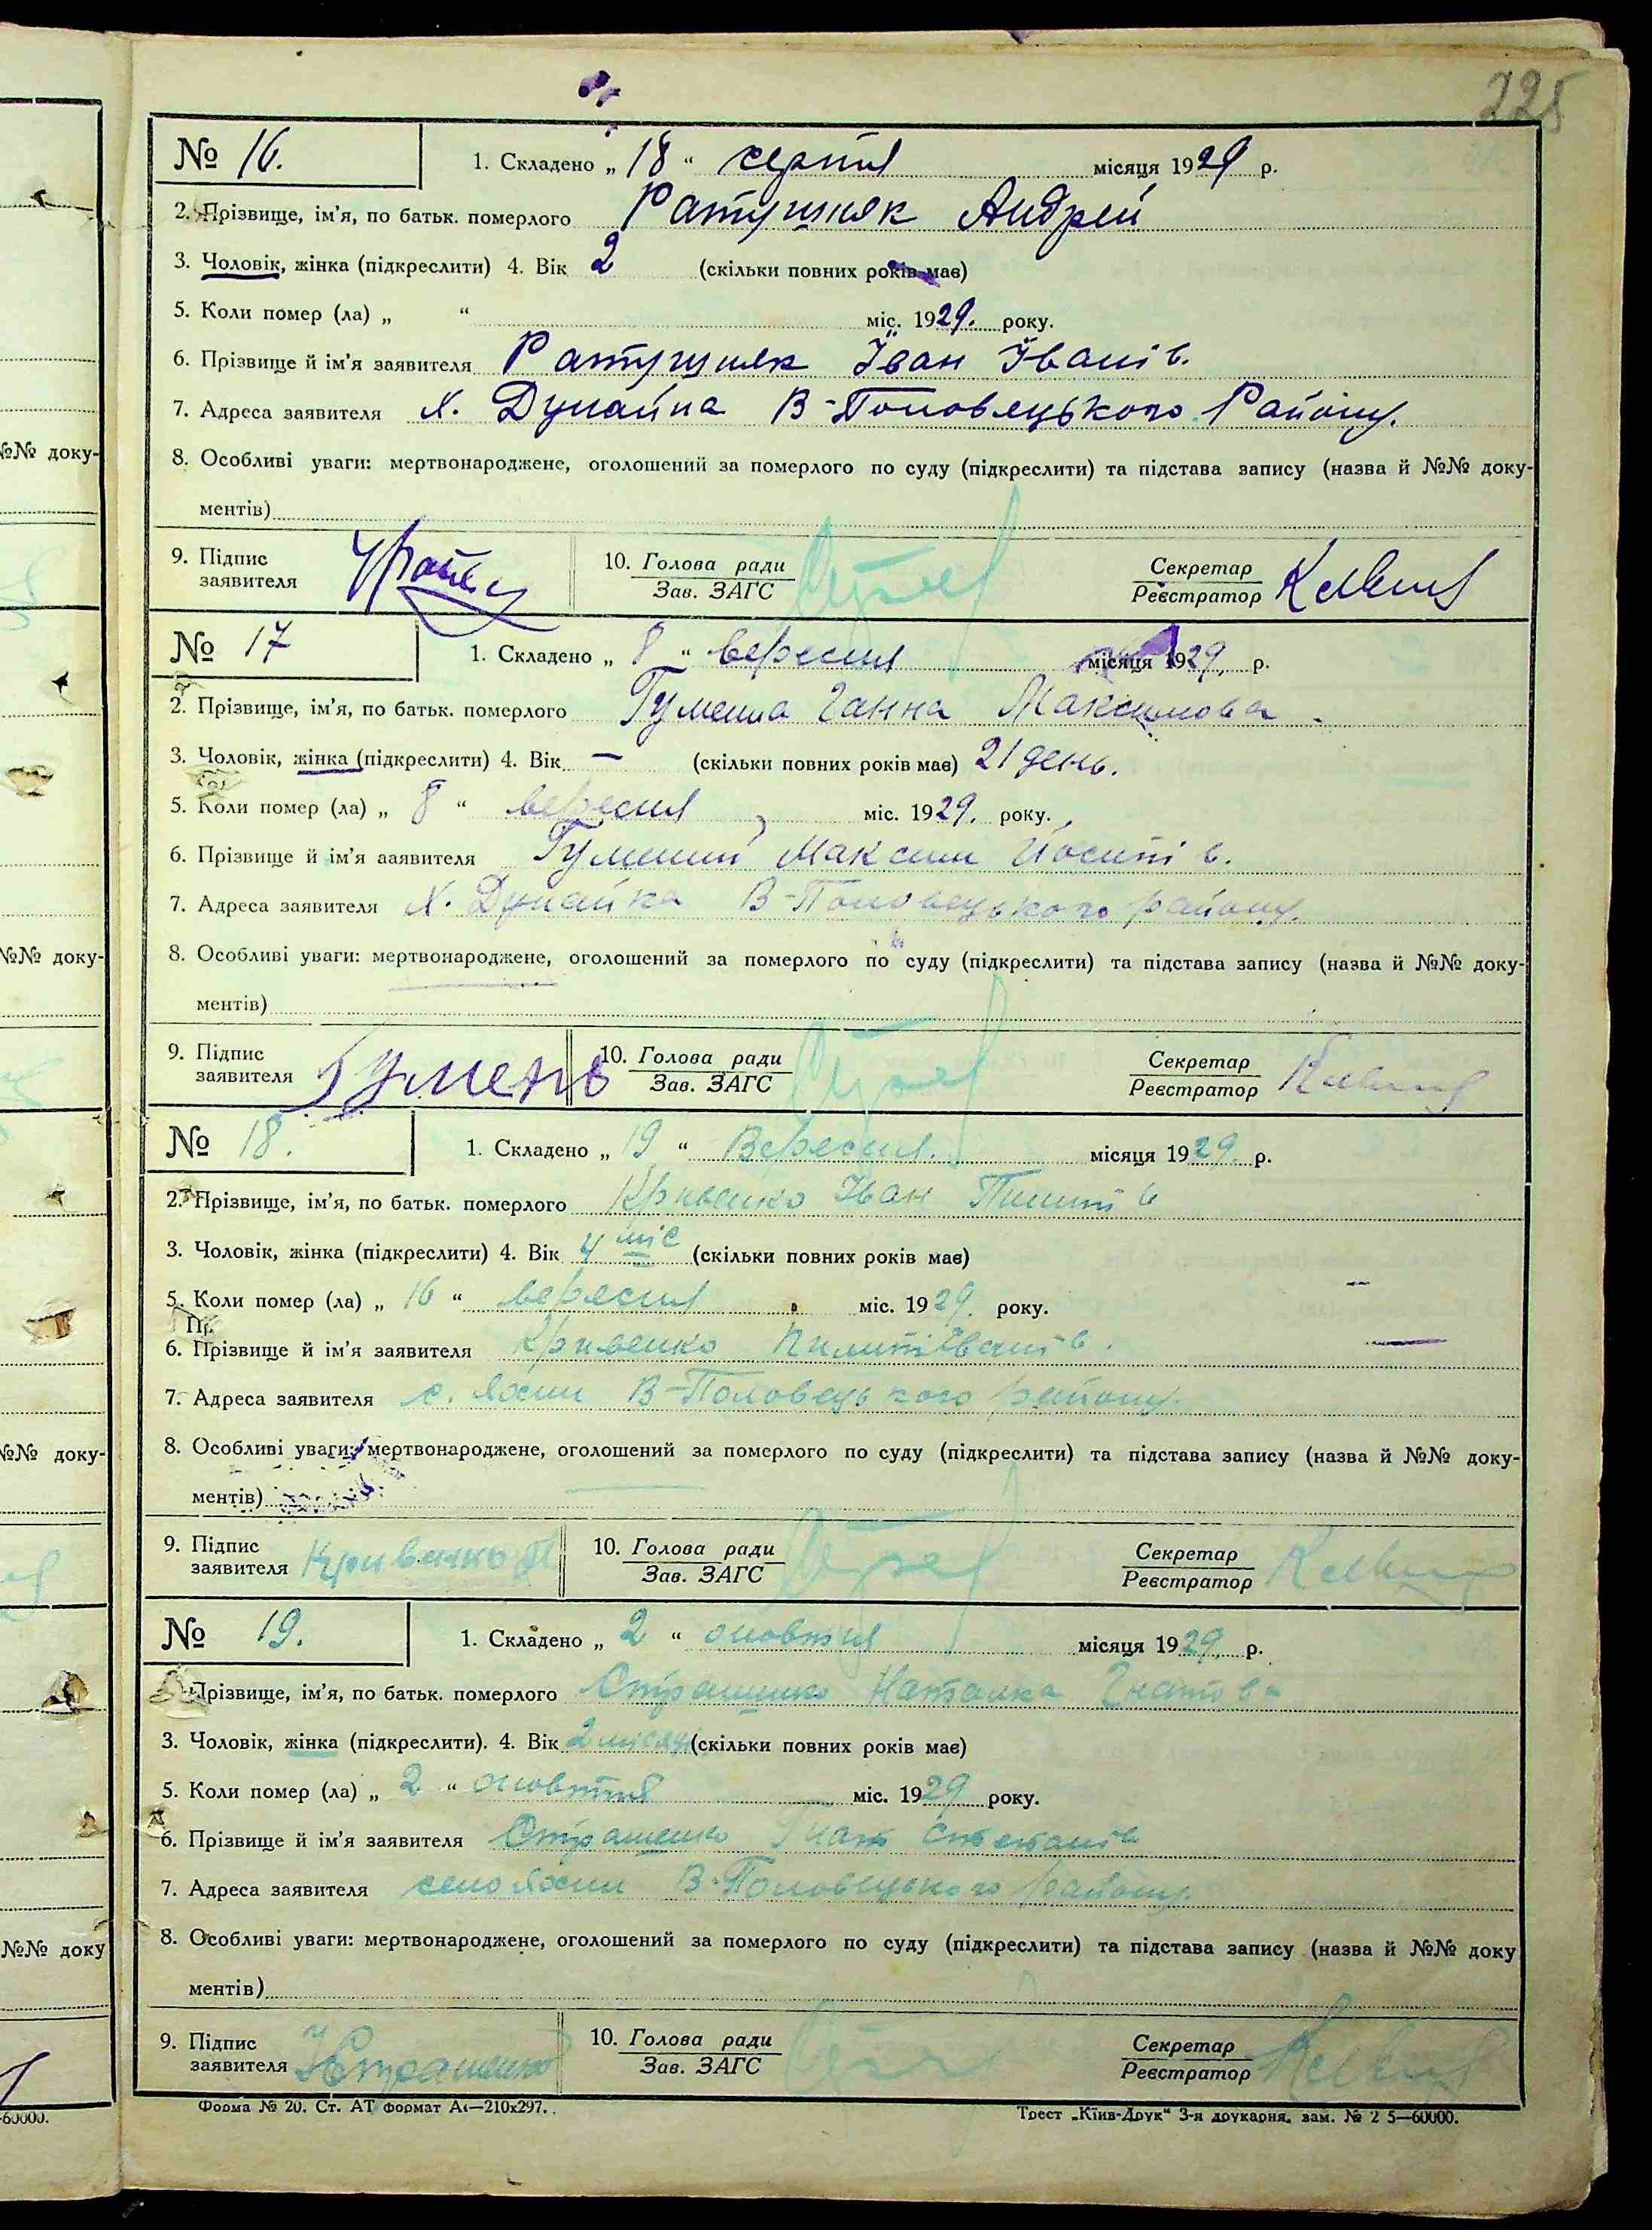 225
№ 16. 1. Складено „18“ серпня місяця 1929 р.
2. Прізвище, ім’я, по батьк. померлого Ратушняк Андрей
3. Чоловік, жінка (підкреслити) 4. Вік 2 (скільки повних років має)
5. Коли помер (ла) „ “ міс. 1929. року.
6. Прізвище й ім’я заявителя Ратушняк Іван Іванів.
7. Адреса заявителя х. Дунайка В-Половецького Району.
8. Особливі уваги: мертвонароджене, оголошений за померлого по суду (підкреслити) та підстава запису (назва й №№ доку-
ментів)
9. Підпис заявителя 10. Голова ради Зав. ЗАГС Секретар Реєстратор
№ 17 1. Складено „8“ вересня місяця 1929, р.
2. Прізвище, ім’я, по батьк. померлого Гуменна Ганна Максимова.
3. Чоловік, жінка (підкреслити) 4. Вік — (скільки повних років має) 21 день.
5. Коли помер (ла) „8“ вересня міс. 1929. року.
6. Прізвище й ім’я заявителя Гуменний Максим Йосипів.
7. Адреса заявителя х. Дунайка В-Половецького району.
8. Особливі уваги: мертвонароджене, оголошений за померлого по суду (підкреслити) та підстава запису (назва й №№ доку-
ментів)
9. Підпис заявителя Гумень 10. Голова ради Зав. ЗАГС Секретар Реєстратор
№ 18. 1. Складено „19“ Вересня. місяця 1929. р.
2. Прізвище, ім’я, по батьк. померлого Кривенко Іван Пилипів
3. Чоловік, жінка (підкреслити) 4. Вік 4 міс (скільки повних років має)
5. Коли помер (ла) „16“ вересня міс. 1929. року.
6. Прізвище й ім’я заявителя Кривенко Пилип Іванів.
7. Адреса заявителя с. Яхни В-Половецького району.
8. Особливі уваги: мертвонароджене, оголошений за померлого по суду (підкреслити) та підстава запису (назва й №№ доку-
ментів)
9. Підпис заявителя Кривенко П 10. Голова ради Зав. ЗАГС Секретар Реєстратор
№ 19. 1. Складено „2“ жовтня місяця 1929, р.
Прізвище, ім’я, по батьк. померлого Страшенко Наталка Гнатова
3. Чоловік, жінка (підкреслити). 4. Вік 2 місяц (скільки повних років має)
5. Коли помер (ла) „2“ жовтня міс. 1929 року.
6. Прізвище й ім’я заявителя Страшенко Гнат Степанів
7. Адреса заявителя село Яхни В-Половецького району.
8. Особливі уваги: мертвонароджене, оголошений за померлого по суду (підкреслити) та підстава запису (назва й №№ доку
ментів)
9. Підпис заявителя Страшенко 10. Голова ради Зав. ЗАГС Секретар Реєстратор
Форма № 20. Ст. АТ формат А4—210х297. Трест „Київ-Друк“ 3-я друкарня, зам. № 2 5—60000.